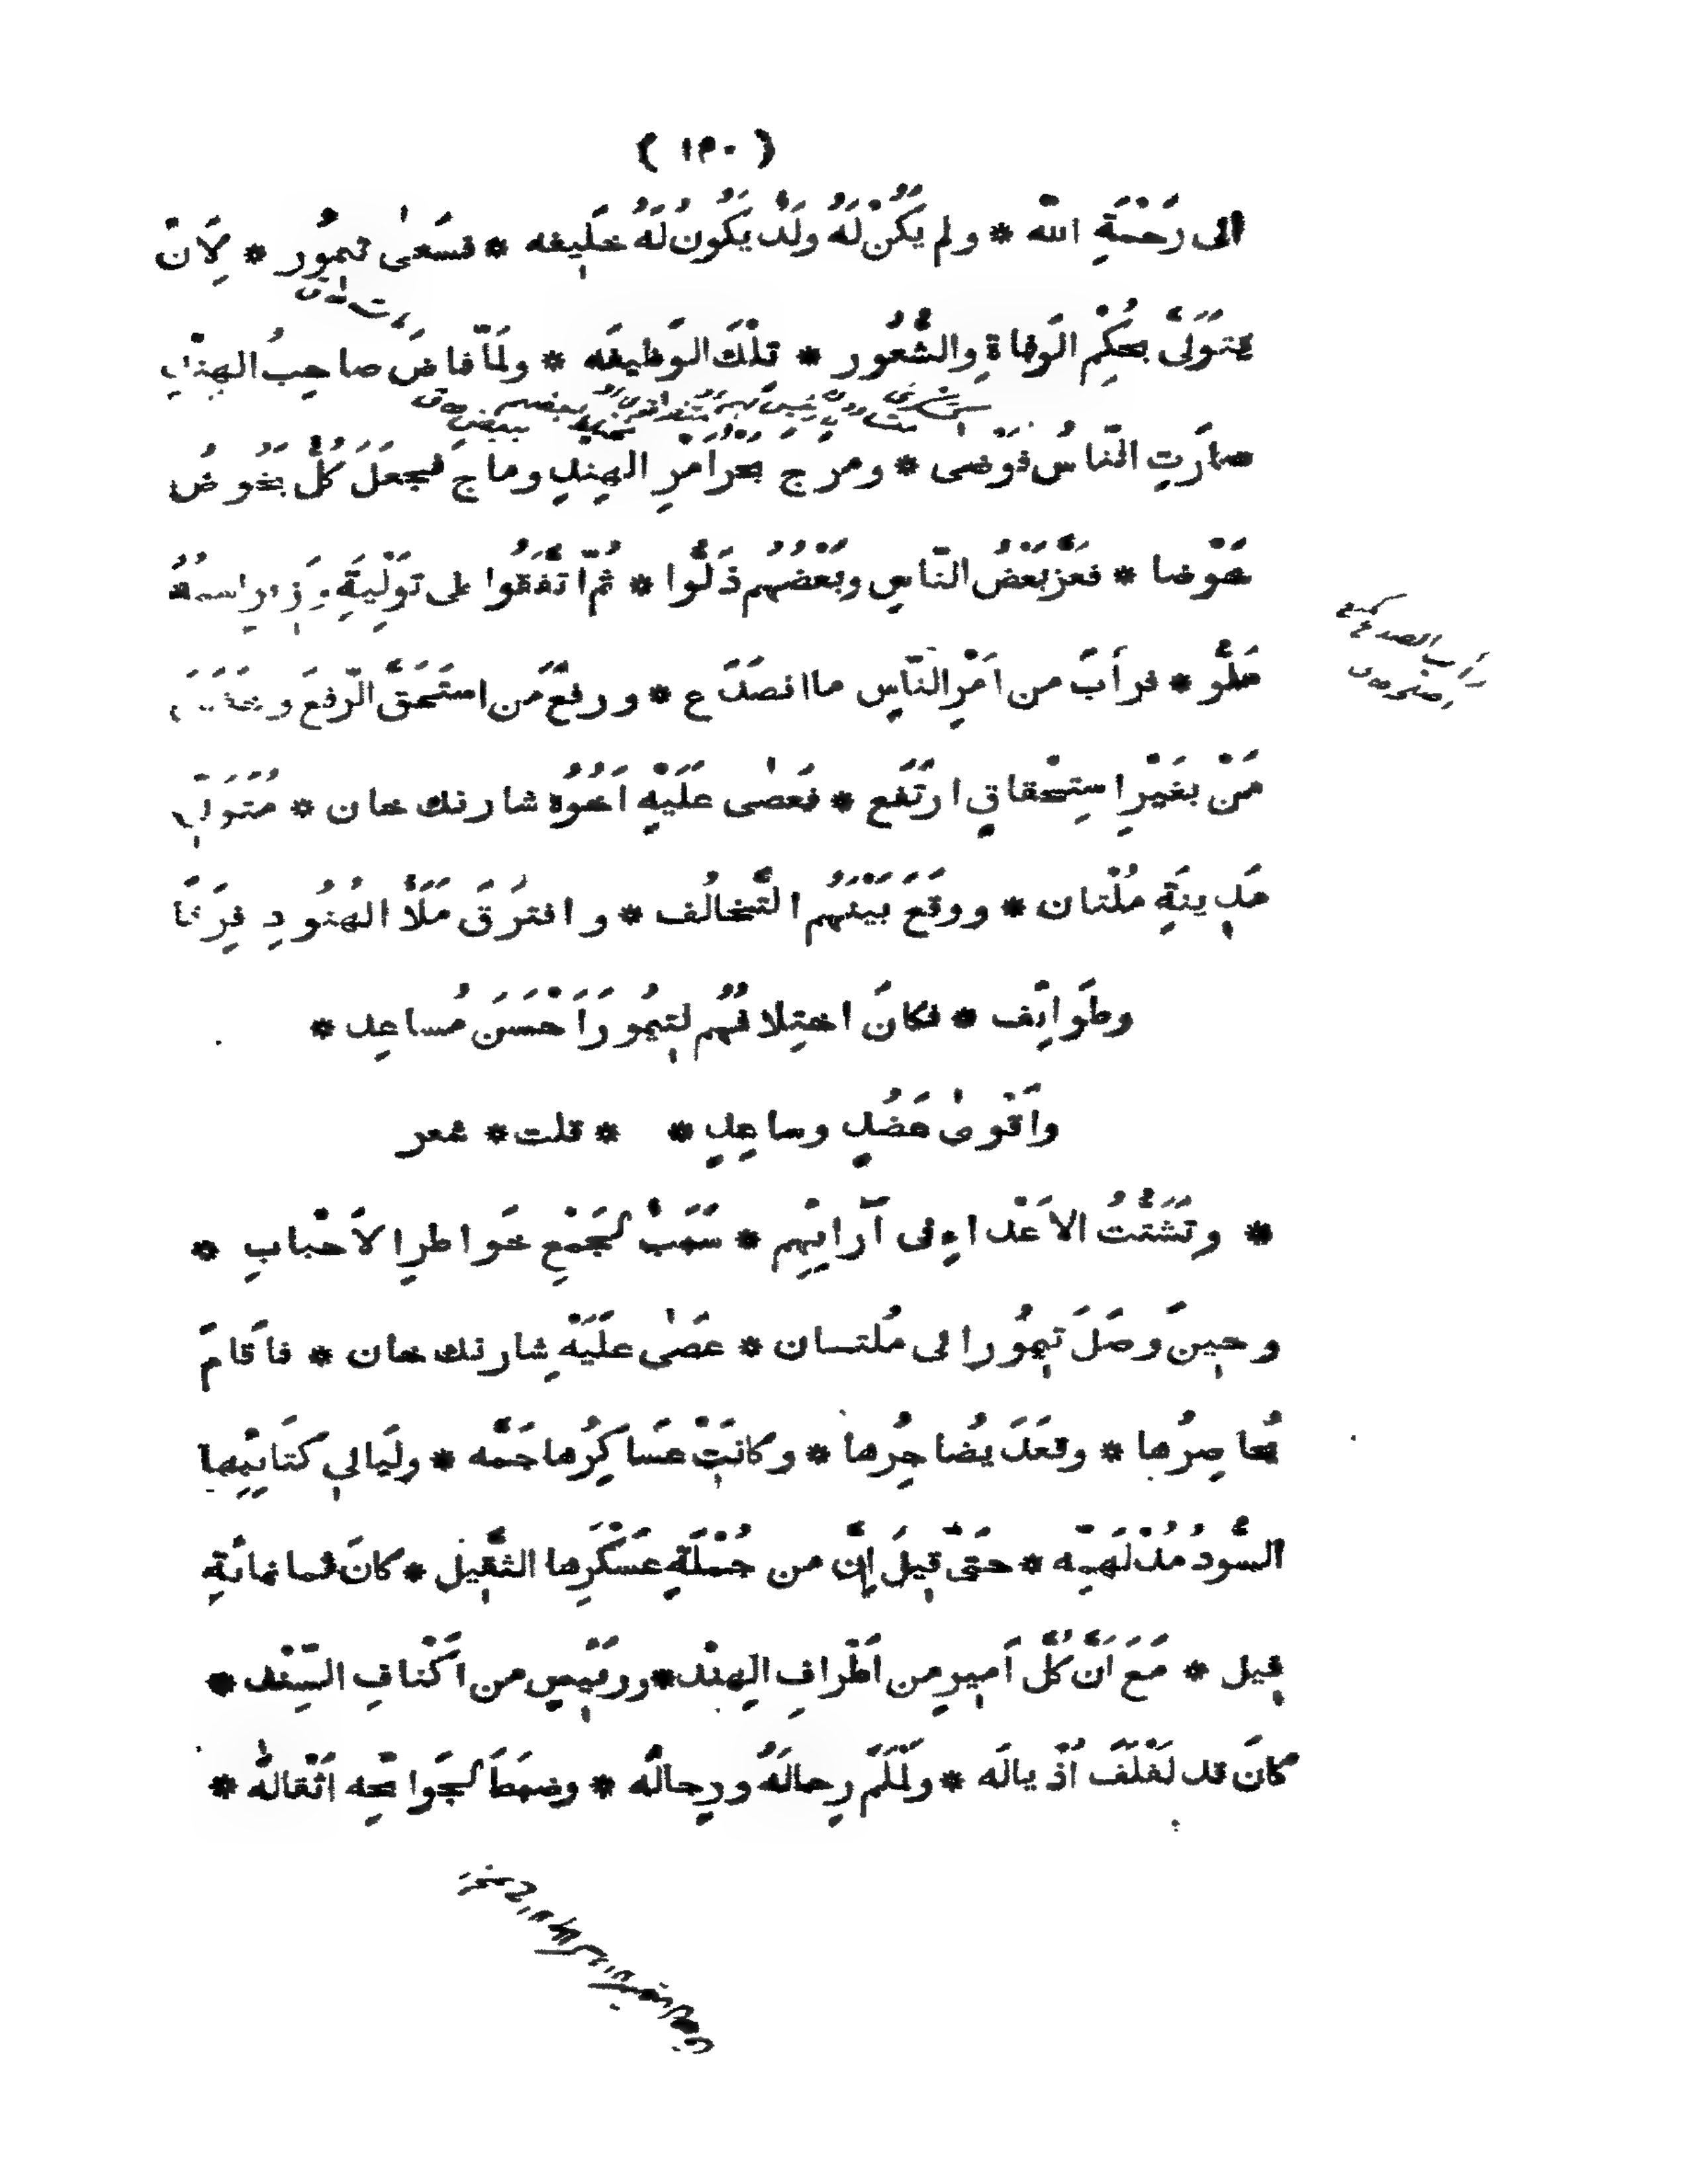 ( ١٣٠ )
الى رَحْمَةِ الله * ولم يَكُنْ لَهُ ولَدٌ يَكُونُ لَهُ خَلِيفه * فسَعىٰ تيمُور * لِاَنْ
يتَوَلّىٰ بحُكْمِ الوَفاةِ والشُّعُور * تلْكَ الوَظيفَه * ولَمّا فاضَ صاحِبُ الهِنْدِ
صارَتِ النّاسُ فَوْضى * ومرج بحرُ امْرِ الهِندِ وماجَ فجعَلَ كُلٌّ يخُوضُ
خَوْضا * فعَزَّ بَعْضُ النّاسِ وبَعْضُهُم ذَلُّوا * ثُمّ اتَّفَقُوا على تَوْلِيَةِ وَزِيرٍ اسمُهُ
مَلُّو * فرأَبَ من اَمْرِ النّاسِ ما انصَدَع * ورفَعَ مَن استَحَقَّ الرّفعَ وخَفَضَ
مَنْ بغَيْرِ استِحْقاقٍ ارتَفَع * فعَصٰى علَيْهِ اَخُوهُ شارنك خان * مُتَوَلّي
مَدِينَةِ مُلْتان * ووقَعَ بَيْنَهُم التَّخالُف * وافتَرَقَ مَلَأُ الهُنُودِ فِرَقًا
وطَوائِف * فكانَ اختِلافُهُم لتيمُورَ اَحْسَنَ مُساعِد *
واَقْوىٰ عَضُدٍ وساعِدٍ * * قلت * شعر
* وتَشَتُّتُ الاَعْداءِ فى آرائِهِم * سَبَبٌ لجَمْعِ خَواطرِ الاَحْبابِ *
وحينَ وصَلَ تيمُور الى مُلتسان * عصَىٰ علَيْهِ شارنك خان * فاَقامَ
يُحاصِرُها * وقعَدَ يُضاجِرُها * وكانَتْ عسَاكِرُها جَمَّه * ولَيالي كتَائبِها
السُّود مُدْلَهِمّه * حَتّى قيلَ اِنَّ من جُمْلَةِ عَسْكَرِها الثَّقيل * كانَ ثمانمائةِ
فيل * مَعَ اَنَّ كُلَّ اَميرٍ من اَطْرافِ الهِنْد * ورئيسٍ من اَكْنافِ السِّنْد *
كانَ قد لَفْلَفَ اَذْيالَه * ولَمْلَمَ رِحالَهُ ورِجالَه * وضبَطَ لجَوائحِه اَثْقالَهُ *